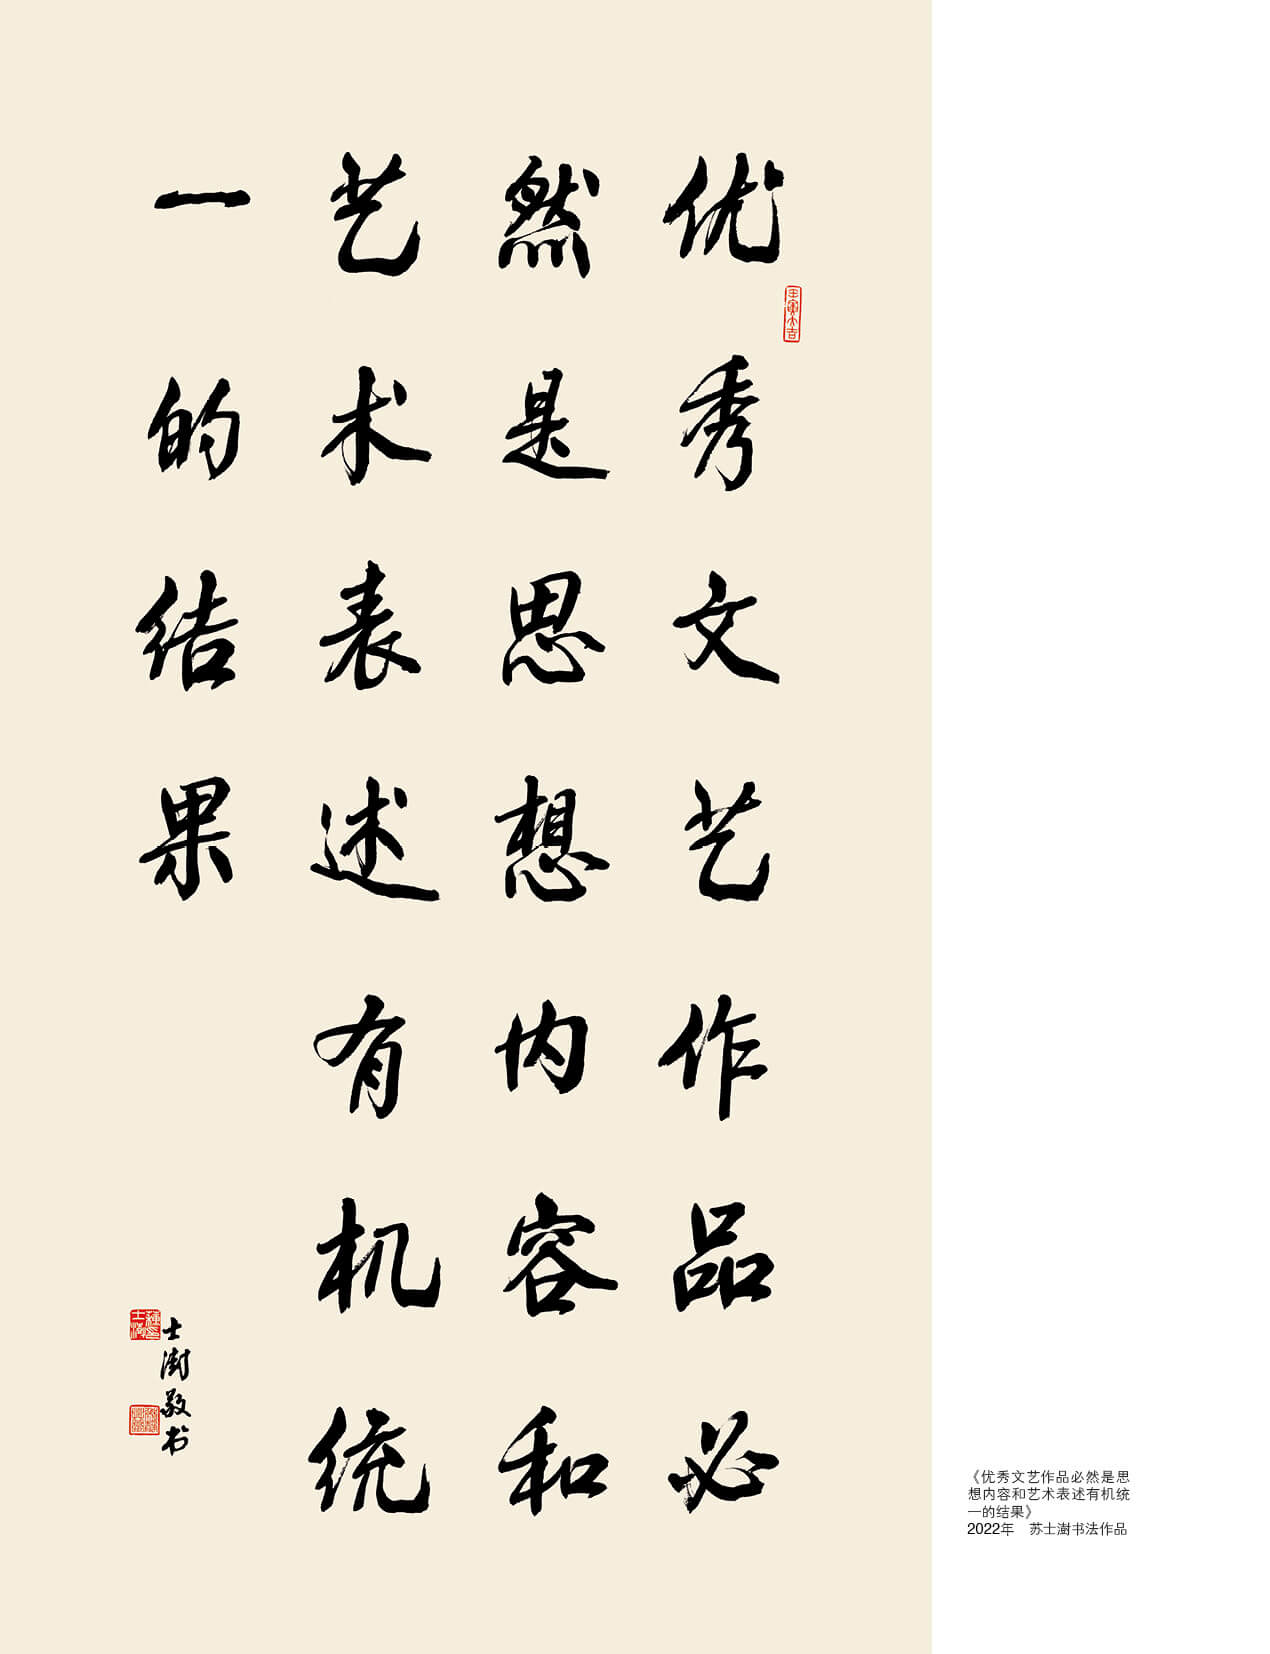 优秀文艺作品必
然是思想内容和
艺术表述有机统
一的结果
士澍敬书
壬寅大吉
《优秀文艺作品必然是思
想内容和艺术表述有机统
一的结果》
2022年　苏士澍书法作品